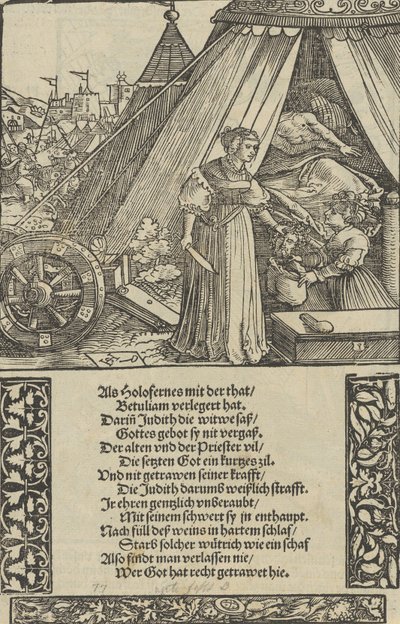 Als Holofernes mit der that/
Betuliam verlegert hat.
Darin̄ Judith die witwe saß/
Gottes gebot sy nit vergaß.
Der alten vnd der Priester vil/
Die setzten Got ein kurtzes zil.
Vnd nit getrawen seiner krafft/
Die Judith darumb weißlich strafft.
Ir ehren gentzlich vnberaubt/
Mit seinem schwert sy jn enthaupt.
Nach füll deß weins in hartem schlaf/
Starb solcher wütrich wie ein schaf
Also findt man verlassen nie/
Wer Got hat recht getrawet hie.